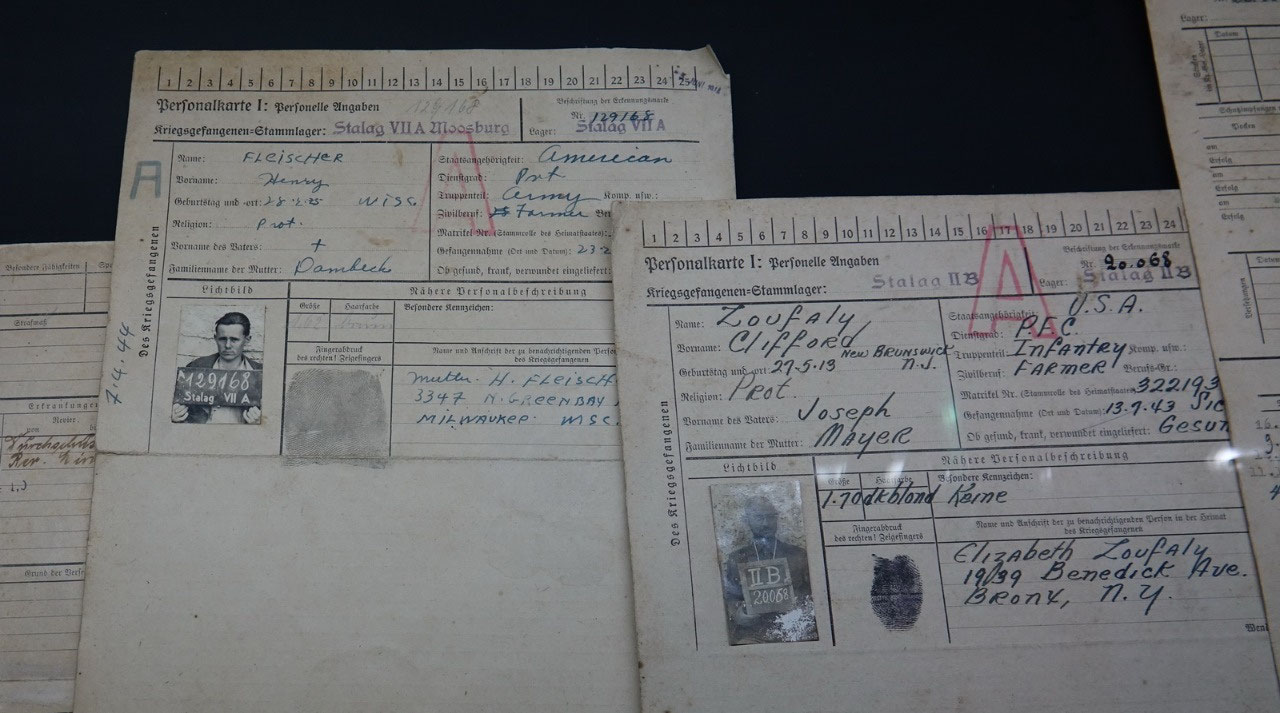 1 2 3 4 5 6 7 8 9 10 11 12 13 14 15 16 17 18 19 20 21 22 23 24 25
Personalkarte I: Personelle Angaben
129168
Beschriftung der Erkennungsmarke
Nr. 129168
Kriegsgefangenen=Stammlager: Stalag VII A Moosburg
Lager: Stalag VII A
A
A
Des Kriegsgefangenen
7.4.44
Name: FLEISCHER
Vorname: Henry
Geburtstag und -ort: 28.2.25 WISC.
Religion: Prot.
Vorname des Vaters: +
Familienname der Mutter: Dambeck
Staatsangehörigkeit: American
Dienstgrad: Pvt
Truppenteil: Army Komp. usw.:
Zivilberuf: Farmer
Matrikel Nr. (Stammrolle des Heimatstaates):
Gefangennahme (Ort und Datum): 23.2
Ob gesund, krank, verwundet eingeliefert:
Lichtbild
Nähere Personalbeschreibung
Größe Haarfarbe Besondere Kennzeichen:
129168
Stalag VII A
Fingerabdruck
des rechten! Zeigefingers
Name und Anschrift der zu benachrichtigenden
des Kriegsgefangenen
Mutter. H. FLEISCH
3347 N. GREENBAY
MILWAUKEE WISC.
1 2 3 4 5 6 7 8 9 10 11 12 13 14 15 16 17 18 19 20 21 22 23 24
Personalkarte I: Personelle Angaben
Beschriftung der Erkennungsmarke
Nr. 20.068
Kriegsgefangenen=Stammlager: Stalag II B
Lager: Stalag II B
A
Des Kriegsgefangenen
Name: Zoufaly
Vorname: Clifford
Geburtstag und -ort: 27-5-13 NEW BRUNSWICK N.J.
Religion: Prot.
Vorname des Vaters: Joseph
Familienname der Mutter: MAYER
Staatsangehörigkeit: U.S.A.
Dienstgrad: P.F.C.
Truppenteil: INFANTRY Komp. usw.:
Zivilberuf: FARMER Berufs-Gr.:
Matrikel Nr. (Stammrolle des Heimatstaates): 322193
Gefangennahme (Ort und Datum): 13.7.43 Sic
Ob gesund, krank, verwundet eingeliefert: Gesun
Lichtbild
Nähere Personalbeschreibung
Größe Haarfarbe Besondere Kennzeichen:
1.70 dkblond Keine
II B.
20068
Fingerabdruck
des rechten! Zeigefingers
Name und Anschrift der zu benachrichtigenden Person in der Heimat
des Kriegsgefangenen
Elizabeth Zoufaly
Benedick Ave.
BRONX, N.Y.
Besondere Fähigkeiten
Strafmaß
Erkrankungen
Revier
Grund der
Lager:
Datum
Schutzimpfungen
Pocken
am
Erfolg
am
Erfolg
am
Erfolg
Datum